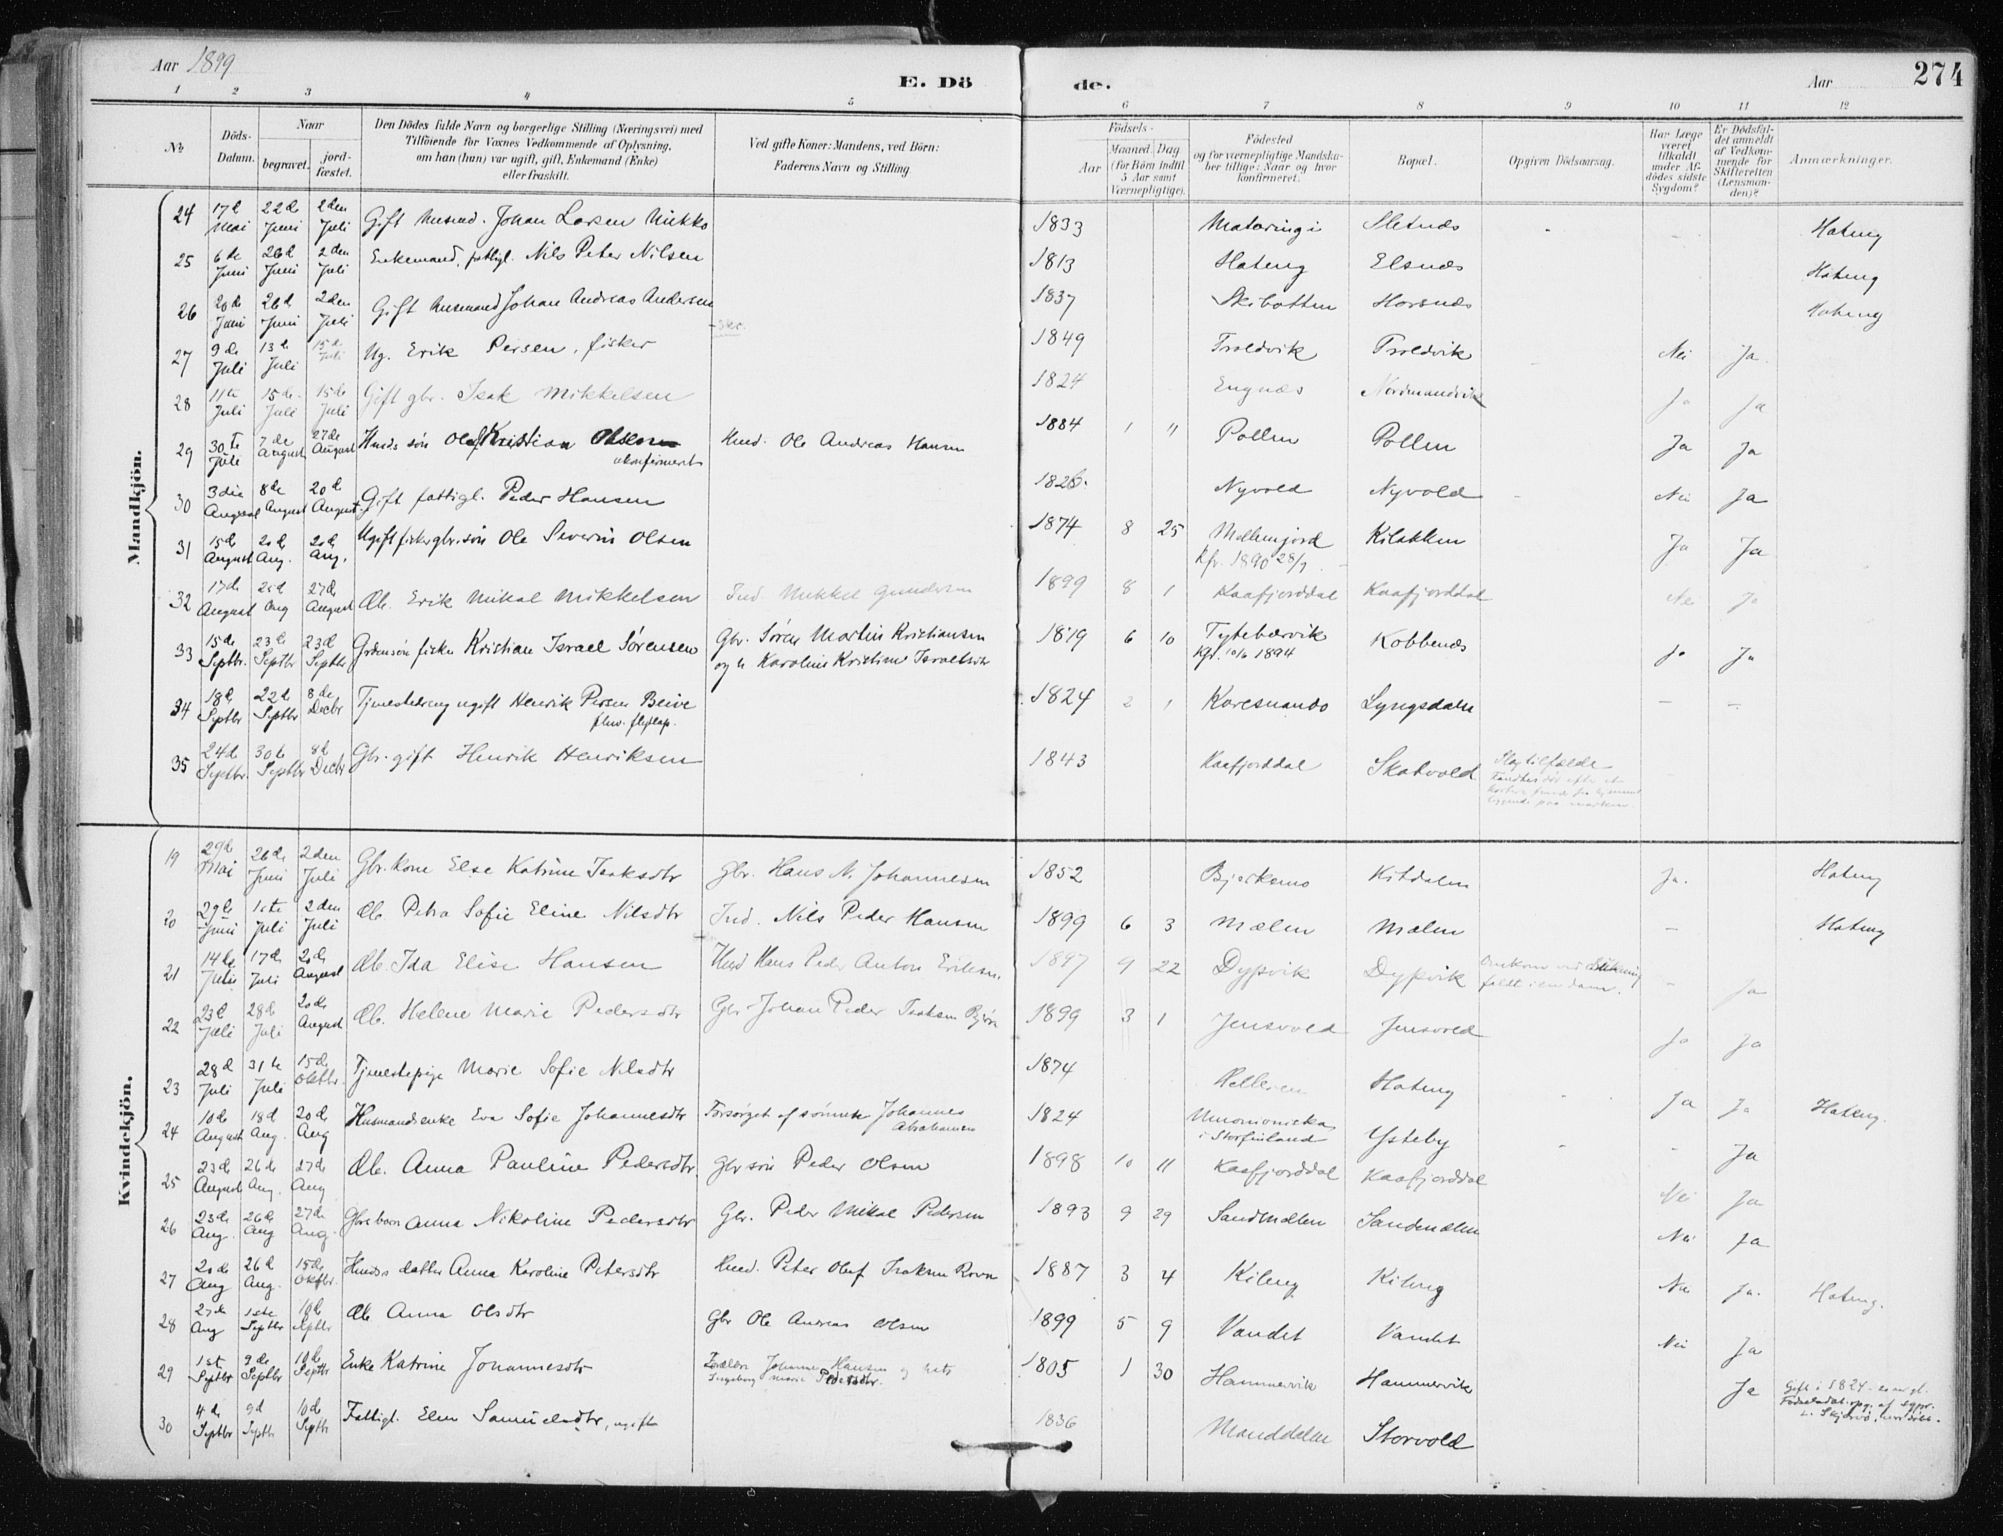 Aar 1899
E. Dö de.
Aar 274
1 2 3 4 5 6 7 8 9 10 11 12
No
Döds-Datum.
Naar
begravet.
jord-fæstet.
Den Dödes fulde Navn og borgerlige Stilling (Næringsvei) med
Tilföiende for Voxnes Vedkommende af Oplysning,
om han (hun) var ugift, gift, Enkemand (Enke)
eller fraskilt.
Ved gifte Koner: Mandens, ved Börn:
Faderens Navn og Stilling
Födsels-
Aar
Maaned Dag
(for Börn indtil
5 Aar samt
Værnepligtige).
Födested
og for værnepligtige Mandska-
ber tillige: Naar og hvor
konfirmeret.
Bopæl.
Opgiven Dödsaarsag.
Har Læge
været
tilkaldt
under Af-
dödes sidste
Sygdom?
Er Dödsfal-
det anmeldt
af Vedkom-
mende for
Skifteretten
(Lensman-
den)?
Anmærkninger.
Mandkjön.
24 17d Mai 22de Juni 2den Juli Gift Johan Larsen Nikko 1833 Mataringi Sletnæs - Hateng
25 6te Juni 26d Juni 2den Juli Enkemand, fattigl. Nils Peter Nilsen 1813 Hateng Elsnæs Hateng
26 20d Juni 26d Juni 2den Juli Gift Husmand Johan Andreas Andersen 1837 Skibotten Horsnæs Hateng
27 9de Juli 13d Juli 15d Juli Ug. Erik Persen, fisker 1849 Troldvik Troldvik Nei Ja.
28 11te Juli 15de Juli 15de Juli Gift gbr. Isak Mikkelsen 1824 Engnæs Nordmandvik Ja Ja
29 30te Juli 7de August 27de August Husds søn Olaf Kristian Olsen Husd. Ole Andreas Hansen 1884 1 " Pollen Pollen Ja Ja
ukonfirmeret
30 3die August 8de August 20d August Gift fattigl. Peder Hansen 1826. Nyvold Nyvold - Nei Ja
31 15d August 20d Aug. 20d Aug. Ugift fisker gbr. søn Ole Severin Olsen 1874 8 25 Mellemjord Kilakken Ja Ja
Kfr. 1890 28/7
32 17d August 25d Aug 27d August Æb. Erik Mikal Mikkelsen Ind. Mikkel Gundersen 1899 8 1 Kaafjorddal Kaafjorddal Nei Ja
33 15de Septbr. 23d Septbr 23d Septbr Kristian Israel Sørensen Gbr. Søren Martin Kristiansen 1879 6 10 Tyttebærvik Kobbenæs Ja Ja
og h Karoline Kristine Israelsdtr Kfr. 10/6 1894
34 18d Septbr 22d Septbr 8de Decbr Tjenestedreng ugift Henrik Persen Beive 1824 2 1 Karesuando Lyngsdalen - -
35 24d Septbr. 30te Septbr 8d Decbr Gbr. gift Henrik Henriksen 1843 Kaafjorddal Skatvold Slagtilfælde
Kvindekjön.
19 29d Mai 26de Juni 2den Juli Gbr. kone Else Katrine Isaksdtr Gbr. Hans N. Johannesen 1852 Bjerkemo Kitdalen Ja. Hateng
20 29de Juni 1ste Juli 2den Juli Æb. Petra Sofie Eline Nilsdtr Ind. Nils Peder Hansen 1899 6 3 Mælen Mælen - Hateng
21 14de Juli 17de Juli 20de August Æb. Ida Elise Hansen Husd Hans Peder Anton Eriksen. 1897 9 22 Dypvik Dypvik Omkom ved drukning - Ja
faldt i en dam.
22 23d Juli 28d Juli 20de August Æb. Helene Marie Pedersdtr Gbr Johan Peder Isaksen Bjørn 1899 3 1 Jensvold Jensvold Ja Ja
23 28d Juli 31te Juli 15d Oktbr. Tjenestepige Marie Sofie Nilsdtr 1874 Helleren Hateng Ja Ja Hateng.
24 10de August 18d Aug. 20d Aug Husmandsenke Eva Sofie Johannesdtr Forsørget af sønnen Johannes 1824 Muonioniska Ysteby - Ja
Abrahamsen i Storfinland
25 23d August 26de Aug. 27de Aug Æb. Anna Pauline Pedersdtr. Gbr søn Peder Olsen 1898 10 11 Kaafjorddal Kaafjorddal Nei Ja
26 23de Aug. 26de Aug 27de Aug. Gbrs barn Anna Nikoline Pedersdtr Gbr. Peder Mikal Pedersen 1893 9 29 Sandmælen Sandmælen Nei Ja
27 20de Aug 26d Aug. 15de Oktbr. Husds datter Anna Karoline Petersdtr Husd. Peter Oluf Isaksen Rovn 1887 3 4 Kileng Kileng Nei Ja. Hateng.
28 27de Aug 1ste Septbr 10d Septbr Æb Anna Olsdtr Gbr Ole Andreas Olsen 1899 5 9 Vandet Vandet Nei Ja
29 1ste Septbr 9de Septbr 10de Septbr Enke Katrine Johannesdtr Forældre Johannes Hansen og 1805 1 30 Hammervik Hammervik Ja Gift i 1824
Ingeborg Marie Pedersdtr.
30 4de Septbr 9d Septbr 10de Septbr Fattigl. Elen Samuelsdtr, ugift 1836 Manddelen Storvold